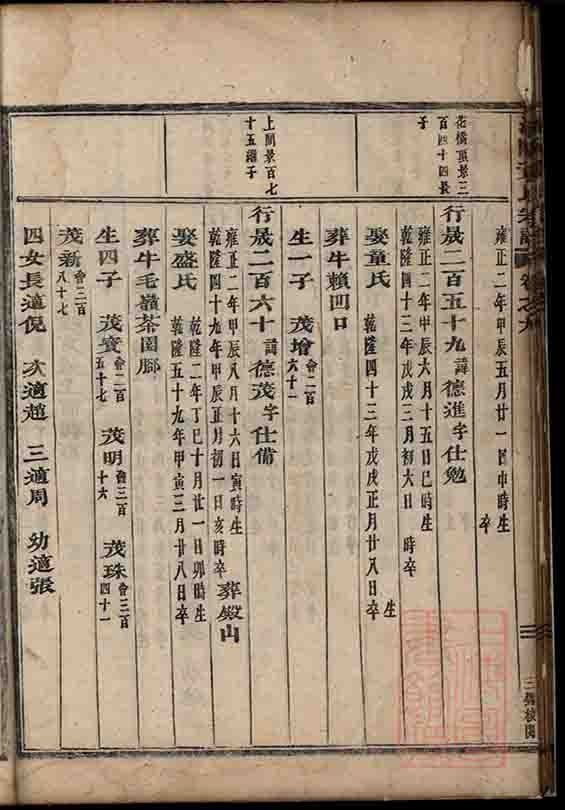 雍正二年甲辰五月廿一日申時生
卒
花橋頂景三
百四十四長
子
行晟二百五十九 諱德進字仕勉
雍正二年甲辰六月十五日巳時生
乾隆四十三年戊戌三月初六日 時卒
娶童氏
生
乾隆四十三年戊戌正月廿八日卒
葬牛賴凹口
生一子 茂增 會二百
六十一
上閣景百七
十五繼子
行晟二百六十 諱德茂字仕備
雍正二年甲辰八月十六日寅時生
乾隆四十九年甲辰正月初一日亥時卒 葬殿山
娶盛氏
乾隆二年丁巳十月廿一日卯時生
乾隆五十九年甲寅三月廿八日卒
葬牛毛嶺茶園腳
生四子 茂寶 會二百
五十七
茂明 會三百
十六
茂珠 會三百
四十一
茂新 會三百
八十七
四女長適倪 次適趙 三適周 幼適張